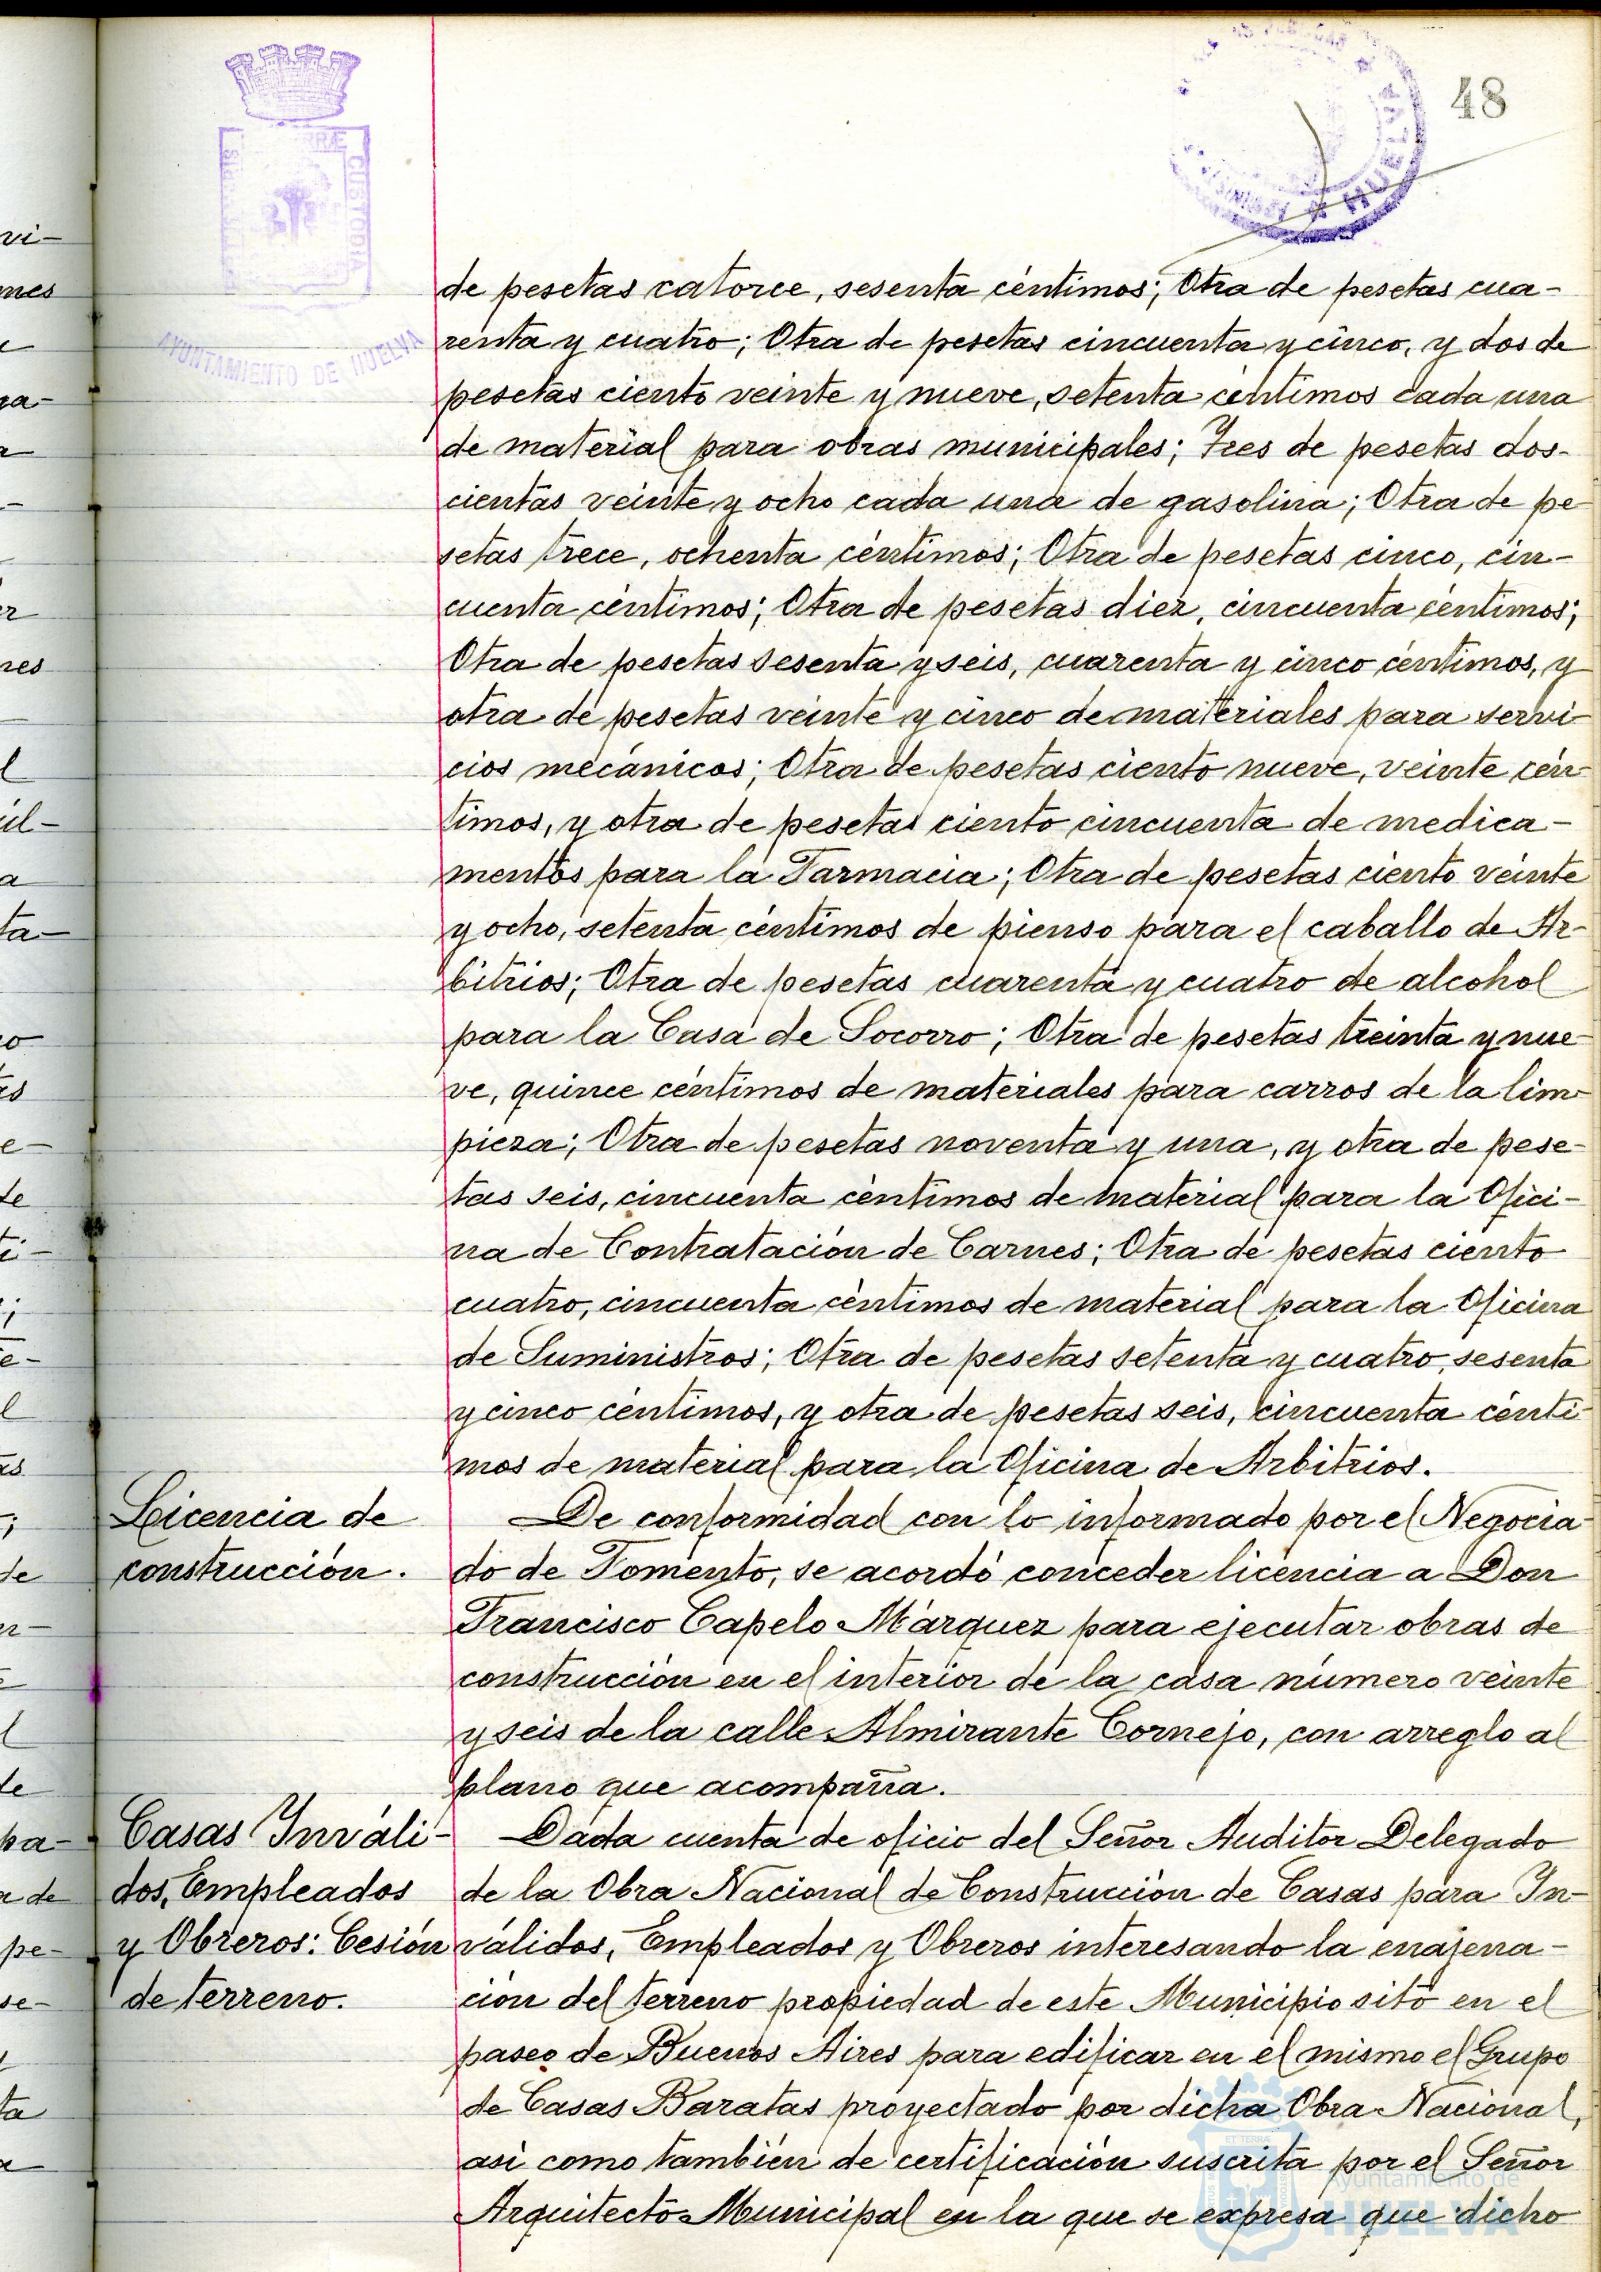 48
AYUNTAMIENTO DE HUELVA
CUSTODIA
HUELVA
de pesetas catorce, sesenta céntimos; Otra de pesetas cua-
renta y cuatro; Otra de pesetas cincuenta y cinco, y dos de
pesetas ciento veinte y nueve, setenta céntimos cada una
de material para obras municipales; Tres de pesetas dos-
cientas veinte y ocho cada una de gasolina; Otra de pe-
setas trece, ochenta céntimos; Otra de pesetas cinco, cin-
cuenta céntimos; Otra de pesetas diez, cincuenta céntimos;
Otra de pesetas sesenta y seis, cuarenta y cinco céntimos, y
otra de pesetas veinte y cinco de materiales para servi-
cios mecánicos; Otra de pesetas ciento nueve, veinte cén-
timos, y otra de pesetas ciento cincuenta de medica-
mentos para la Farmacia; Otra de pesetas ciento veinte
y ocho, setenta céntimos de pienso para el caballo de Ar-
bitrios; Otra de pesetas cuarenta y cuatro de alcohol
para la Casa de Socorro; Otra de pesetas treinta y nue-
ve, quince céntimos de materiales para carros de la lim-
pieza; Otra de pesetas noventa y una, y otra de pese-
tas seis, cincuenta céntimos de material para la Ofici-
na de Contratación de Carnes; Otra de pesetas ciento
cuatro, cincuenta céntimos de material para la Oficina
de Suministros; Otra de pesetas setenta y cuatro, sesenta
y cinco céntimos, y otra de pesetas seis, cincuenta cénti-
mos de material para la Oficina de Arbitrios.
Licencia de
construcción.
De conformidad con lo informado por el Negocia-
do de Fomento, se acordó conceder licencia a Don
Francisco Capelo Márquez para ejecutar obras de
construcción en el interior de la casa número veinte
y seis de la calle Almirante Cornejo, con arreglo al
plano que acompaña.
Casas Inváli-
dos, Empleados
y Obreros: Cesión
de terreno.
Dada cuenta de oficio del Señor Auditor Delegado
de la Obra Nacional de Construcción de Casas para In-
válidos, Empleados y Obreros interesando la enajena-
ción del terreno propiedad de este Municipio sito en el
paseo de Buenos Aires para edificar en el mismo el Grupo
de Casas Baratas proyectado por dicha Obra Nacional,
así como también de certificación suscrita por el Señor
Arquitecto Municipal en la que se expresa que dicho
Ayuntamiento de
HUELVA